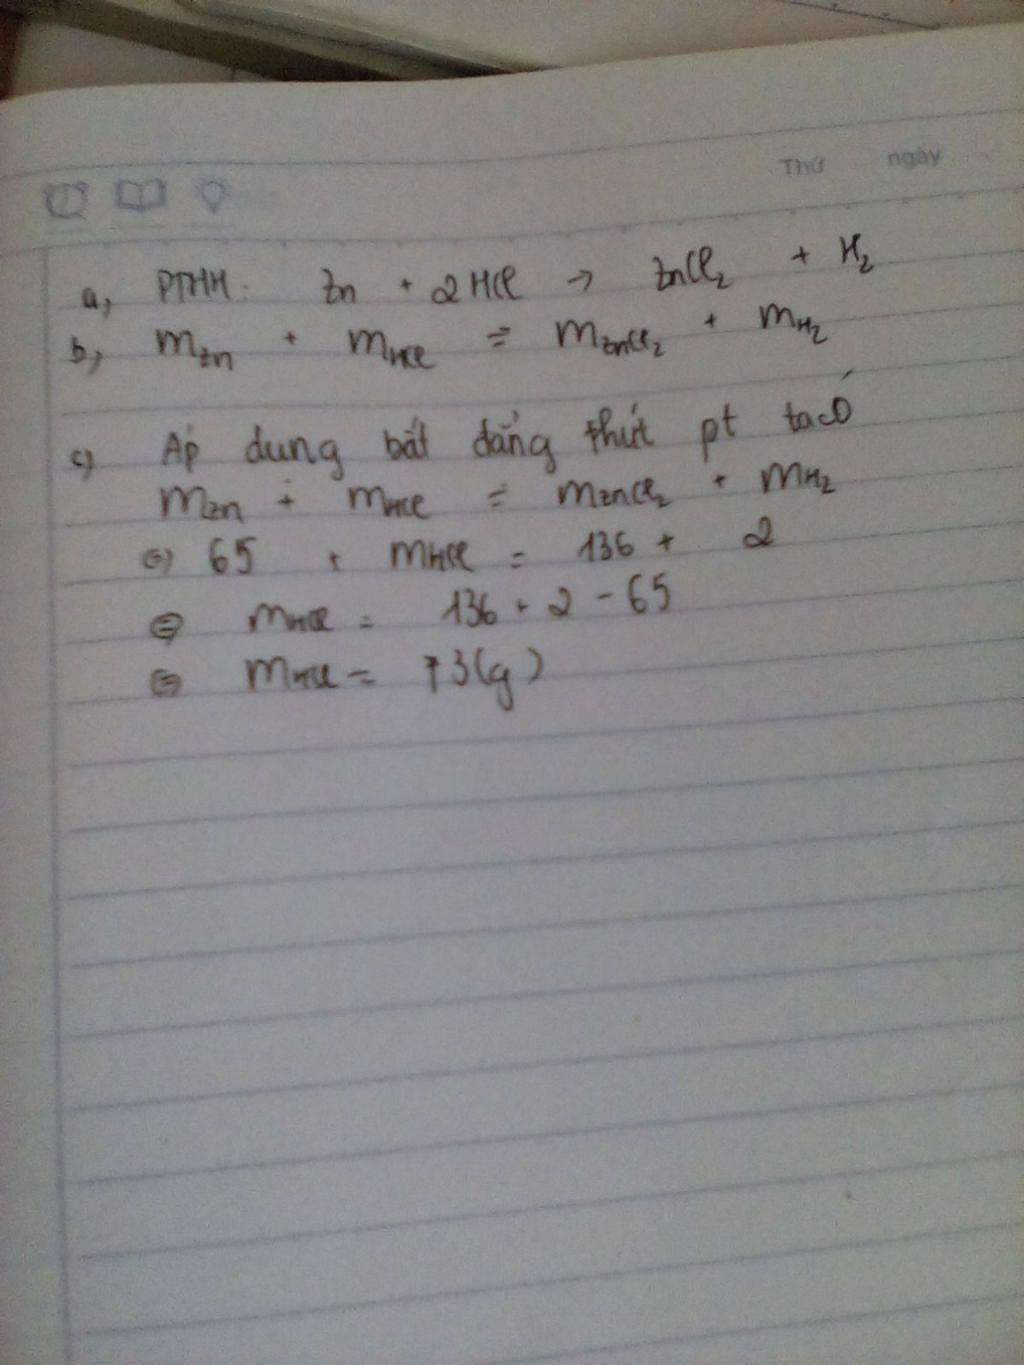 Thứ ngày
a, PTHH: Zn + 2HCl → ZnCl₂ + H₂
b, mZn + mHCl = mZnCl₂ + mH₂
c) Áp dung bất đẳng thứt pt tacó
mZn + mHCl = mZnCl₂ + mH₂
⇔ 65 + mHCl = 136 + 2
⇔ mHCl = 136 + 2 - 65
⇔ mHCl = 73(g)